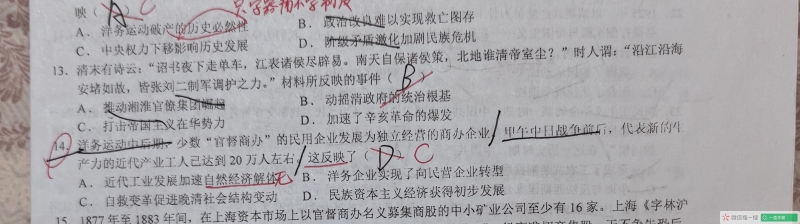 只学器物不学制度
映（A）C
A．洋务运动破产的历史必然性 B．政治改良难以实现救亡图存
C．中央权力下移影响历史发展 D．阶级矛盾激化加剧民族危机
13．清末有诗云：“诏书夜下走单车，江表诸侯尽辟易。南天自保诸侯策，北地谁清帝室尘？”时人谓：“沿江沿海
安堵如故，皆张刘二制军调护之力。”材料所反映的事件（B）
A．推动湘淮官僚集团崛起 B．动摇清政府的统治根基
C．打击帝国主义在华势力 D．加速了辛亥革命的爆发
14．洋务运动中后期，少数“官督商办”的民用企业发展为独立经营的商办企业，甲午中日战争前后，代表新的生
产力的近代产业工人已达到20万人左右，这反映了（D）C
A．近代工业发展加速自然经济解体 B．洋务企业实现了向民营企业转型
C．自救变革促进晚清社会结构变动 D．民族资本主义经济获得初步发展
15．1877年至1883年间，在上海资本市场上以官督商办名义募集商股的中小矿业公司至少有16家。上海《字林沪